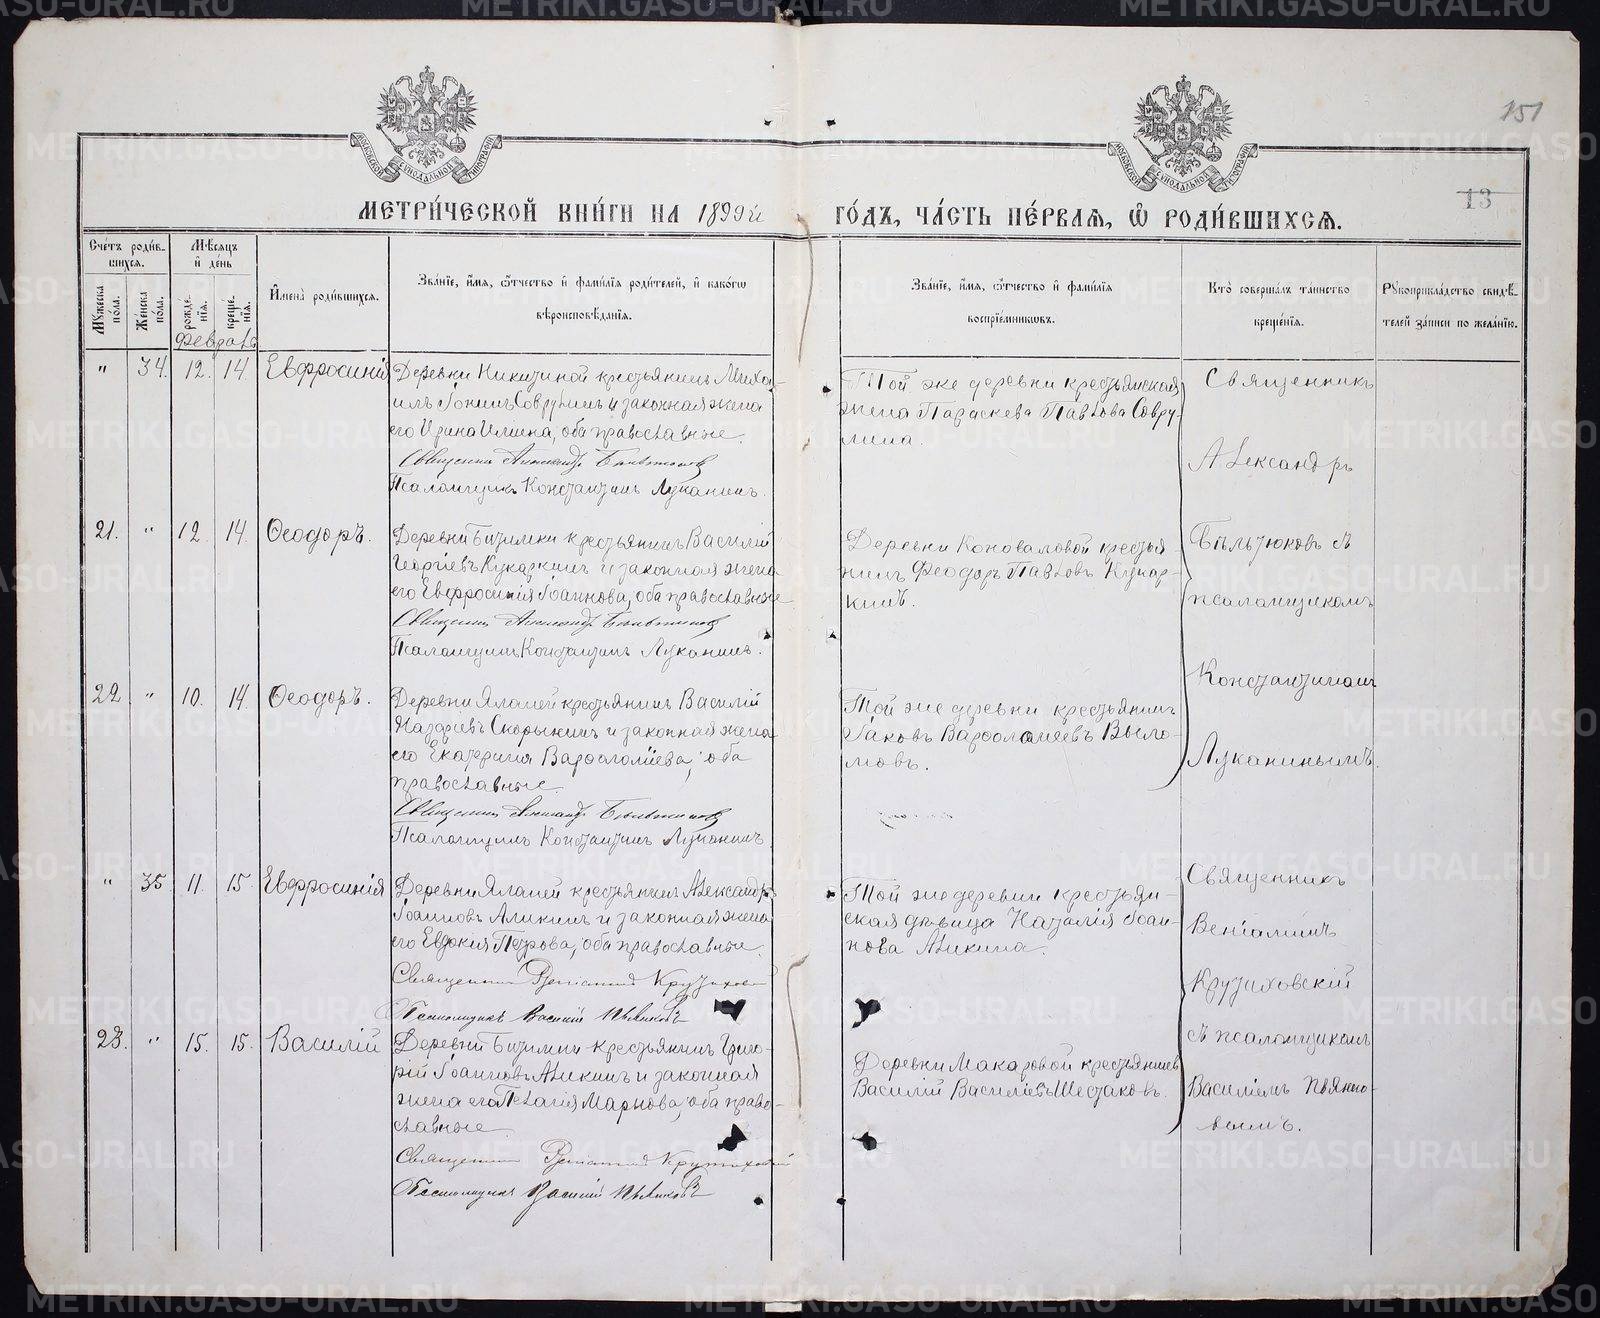 151
13
МОСКОВСКОЙ СѴНОДАЛЬНОЙ ТИПОГРАФІИ
МОСКОВСКОЙ СѴНОДАЛЬНОЙ ТИПОГРАФІИ
МЕТРИ́ЧЕСКОЙ КНИ́ГИ НА 1899й ГО́ДЪ, ЧА́СТЬ ПЕ́РВАѦ, Ѡ҆ РОДИ́ВШИХСѦ.
Сче́тъ роди́в-
шихсѧ.
Мꙋ́жеска по́ла.
Же́нска по́ла.
Мѣ́сѧцъ и҆ де́нь
рожде́-нїѧ.
креще́-нїѧ.
И҆мена̀ роди́вшихсѧ.
Зва́нїе, и҆́мѧ, ѻ҆́тчество и҆ фами́лїѧ роди́телей, и҆ како́гѡ
вѣроисповѣ́данїѧ.
Зва́нїе, и҆́мѧ, ѻ҆́тчество и҆ фами́лїѧ
воспрїе́мникѡвъ.
Кто̀ соверша́лъ та́инство
креще́нїѧ.
Рꙋкоприкла́дство свидѣ́-
телей за́писи по жела́нїю.
Февраль
" 34. 12. 14. Евфросинія
Деревни Никитиной крестьянинъ Миха-
илъ Іонинъ Соврулинъ и законная жена
его Ирина Ильина, оба православные.
Священникъ Александръ Бѣльтюковъ
Псаломщикъ Константинъ Луканинъ.
Той же деревни крестьянская
жена Параскева Павлова Совру-
лина.
Священникъ
Александръ
Бѣльтюковъ съ
псаломщикомъ
Константиномъ
Луканинымъ.
21. " 12. 14. Ѳеодоръ.
Деревни Битимки крестьянинъ Василій
Георгіевъ Кукаркинъ и законная жена
его Евфросинія Іоаннова, оба православные
Священникъ Александръ Бѣльтюковъ
Псаломщикъ Константинъ Луканинъ.
Деревни Коноваловой крестья-
нинъ Феодоръ Павловъ Кукар-
кинъ.
22 " 10. 14. Ѳеодоръ.
Деревни Яланей крестьянинъ Василій
Назаріевъ Скорынинъ и законная жена
его Екатерина Варѳоломіева, оба
православные.
Священникъ Александръ Бѣльтюковъ
Псаломщикъ Константинъ Луканинъ.
Той же деревни крестьянинъ
Іаковъ Варѳоломеевъ Выло-
мовъ.
" 35 11. 15. Евфросинія
Деревни Яланей крестьянинъ Александръ
Іоанновъ Аликинъ и законная жена
его Евдокія Петрова, оба православные.
Священникъ Веніаминъ Крутиховскій
Псаломщикъ Василій Пьянковъ
Той же деревни крестьян-
ская дѣвица Наталія Іоан-
нова Аликина.
Священникъ
Веніаминъ
Крутиховскій
съ псаломщикомъ
Василіемъ Пьянко-
вымъ.
23. " 15. 15. Василій
Деревни Битимки крестьянинъ Григо-
рій Іоанновъ Аликинъ и законная
жена его Пелагія Маркова, оба право-
славные.
Священникъ Веніаминъ Крутиховскій
Псаломщикъ Василій Пьянковъ
Деревни Макаровой крестьянинъ
Василій Василіевъ Шестаковъ.